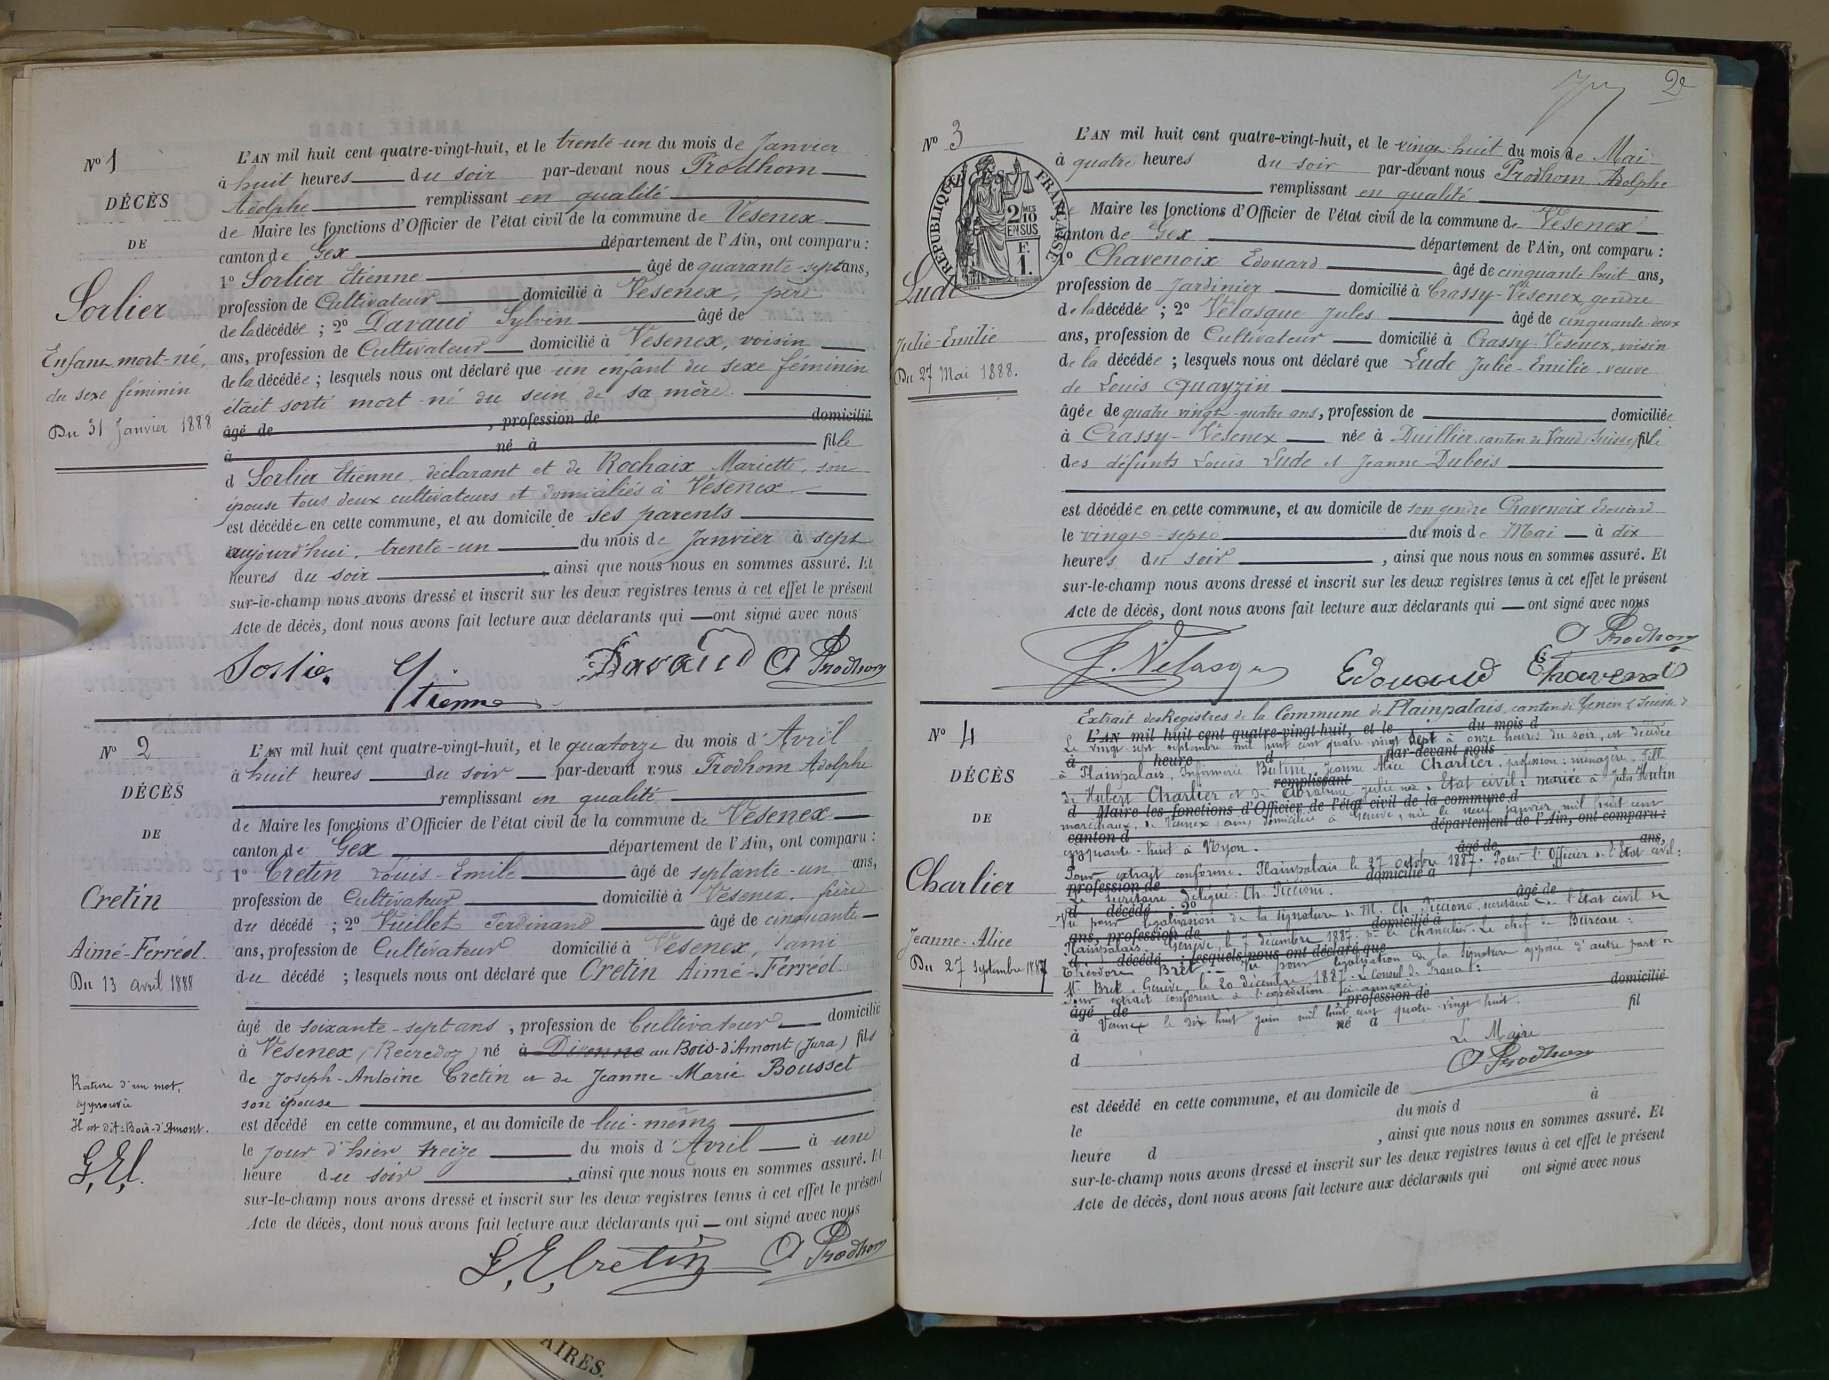 Nº 1
DÉCÈS
DE
Sorlier
Enfant mort-né,
du sexe féminin
Du 31 Janvier 1888
L'AN mil huit cent quatre-vingt-huit, et le trente-un du mois de Janvier
à huit heures du soir par-devant nous Prodhom
Adolphe remplissant en qualité
de Maire les fonctions d'Officier de l'état civil de la commune de Vesenex
canton de Gex département de l'Ain, ont comparu :
1º Sorlier Etienne âgé de quarante-sept ans,
profession de Cultivateur domicilié à Vesenex, père
de la décédée ; 2º Davaud Sylvin âgé de
ans, profession de Cultivateur domicilié à Vesenex, voisin
de la décédée ; lesquels nous ont déclaré que un enfant du sexe féminin
était sorti mort-né du sein de sa mère.
âgé de , profession de domicilié
à né à fille
d Sorlier Etienne, déclarant et de Rochaix Mariette, son
épouse tous deux cultivateurs et domiciliés à Vésenex
est décédée en cette commune, et au domicile de ses parents
aujourd'hui, trente-un du mois de Janvier à sept
heures du soir , ainsi que nous nous en sommes assuré. Et
sur-le-champ nous avons dressé et inscrit sur les deux registres tenus à cet effet le présent
Acte de décès, dont nous avons fait lecture aux déclarants qui ont signé avec nous
Sorlier Etienne Davaud A Prodhom
Nº 2
DÉCÈS
DE
Cretin
Aimé-Ferréol
Du 13 Avril 1888
Rature d'un mot,
approuvée
Il est dit: Bois-d'Amont.
L'AN mil huit cent quatre-vingt-huit, et le quatorze du mois d'Avril
à huit heures du soir par-devant nous Prodhom Adolphe
remplissant en qualité
de Maire les fonctions d'Officier de l'état civil de la commune de Vesenex
canton de Gex département de l'Ain, ont comparu :
1º Cretin Louis-Emile âgé de septante-un ans,
profession de Cultivateur domicilié à Vesenex, frère
du décédé ; 2º Vuillet Ferdinand âgé de cinquante
ans, profession de Cultivateur domicilié à Vesenex, ami
du décédé ; lesquels nous ont déclaré que Cretin Aimé-Ferréol
âgé de soixante-sept ans , profession de Cultivateur domicilié
à Vesenex (Recredoz) né à Divonne au Bois-d'Amont (Jura) fils
de Joseph-Antoine Cretin et de Jeanne-Marie Bousset
son épouse
est décédé en cette commune, et au domicile de lui-même
le jour d'hier treize du mois d'Avril à une
heure du soir , ainsi que nous nous en sommes assuré. Et
sur-le-champ nous avons dressé et inscrit sur les deux registres tenus à cet effet le présent
Acte de décès, dont nous avons fait lecture aux déclarants qui ont signé avec nous
L, E, Cretin A Prodhom
2
Nº 3
RÉPUBLIQUE FRANÇAISE
2/10 MES
EN SUS
F.
1.
Lude
Julie-Emilie
Du 27 Mai 1888.
L'AN mil huit cent quatre-vingt-huit, et le vingt-huit du mois de Mai
à quatre heures du soir par-devant nous Prodhom Adolphe
remplissant en qualité
de Maire les fonctions d'Officier de l'état civil de la commune de Vésenex
canton de Gex département de l'Ain, ont comparu :
1º Chavenoix Edouard âgé de cinquante huit ans,
profession de Jardinier domicilié à Crassy-Vésenex, gendre
de la décédée ; 2º Vélasque Jules âgé de cinquante-deux
ans, profession de Cultivateur domicilié à Crassy-Vésenex, voisin
de la décédée ; lesquels nous ont déclaré que Lude Julie-Emilie, veuve
de Louis Quayzin
âgée de quatre vingt-quatre ans, profession de domiciliée
à Crassy-Vésenex née à Duillier, canton de Vaud (Suisse) fille
des défunts Louis Lude et Jeanne Dubois
est décédée en cette commune, et au domicile de son gendre Chavenoix Edouard
le vingt-sept du mois de Mai à dix
heures du soir , ainsi que nous nous en sommes assuré. Et
sur-le-champ nous avons dressé et inscrit sur les deux registres tenus à cet effet le présent
Acte de décès, dont nous avons fait lecture aux déclarants qui ont signé avec nous
A Prodhom
J. Vélasque Edouard Chavenoix
Nº 4
DÉCÈS
DE
Charlier
Jeanne-Alice
Du 27 Septembre 1887
Extrait des Registres de la Commune de Plainpalais, canton de Genève (Suisse)
L'AN mil huit cent quatre-vingt-huit, et le du mois d
Le vingt-sept septembre mil huit cent quatre vingt sept à onze heures du soir, est décédée
à heure d par-devant nous
à Plainpalais, Infirmerie Butini, Jeanne Alice Charlier, profession: ménagère, fille
remplissant
de Hubert Charlier et de Julie née. Etat civil: mariée à Jules Hutin
d Maire les fonctions d'Officier de l'état civil de la commune d
domiciliée à Genève, née le neuf Janvier mil huit cent
canton d département de l'Ain, ont comparu :
cinquante-huit à Nyon.
âgé de ans,
Pour extrait conforme. Plainpalais le 27 octobre 1887. Pour l'Officier de l'Etat civil:
profession de domicilié à
Le Secrétaire délégué: Ch. Piccioni.
d décédé ; 2º âgé de
Vu pour légalisation de la signature de M. Ch. Piccioni, secrétaire de l'Etat civil de
ans, profession de domicilié à
Plainpalais. Genève, le 7 décembre 1887. Pr le Chancelier. Le chef de Bureau:
d décédé ; lesquels nous ont déclaré que
Théodore Bret. Vu pour légalisation de la signature apposée d'autre part de
M. Bret. Genève, le 20 décembre 1887. Le Consul de France:
Pour extrait conforme à l'expédition ci-annexée
âgé de profession de domicilié
à Vesenex le dix huit Juin mil huit cent quatre-vingt huit.
né à fil
d
Le Maire
A Prodhom
est décédé en cette commune, et au domicile de
le du mois d à
heure d , ainsi que nous nous en sommes assuré. Et
sur-le-champ nous avons dressé et inscrit sur les deux registres tenus à cet effet le présent
Acte de décès, dont nous avons fait lecture aux déclarants qui ont signé avec nous
AIRES.